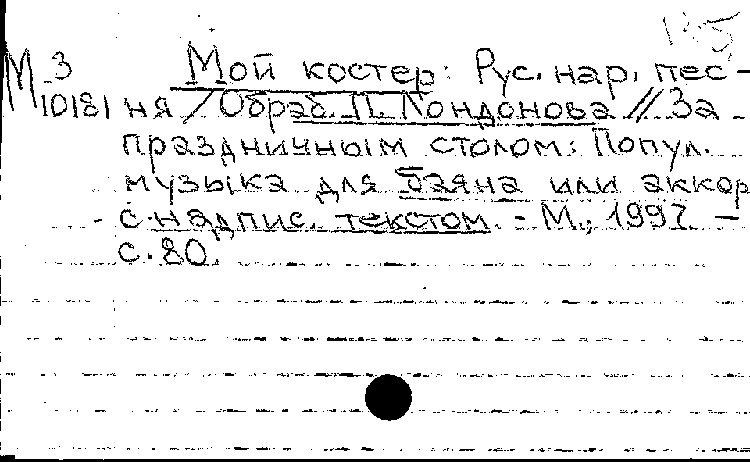 М 3 Мой костер: Рус. нар. пес-
10181 ня / Обраб. П. Лондонова // За
праздничным столом: Попул.
музыка для баяна или аккор
с надпис. текстом. - М., 1997. -
с. 80.